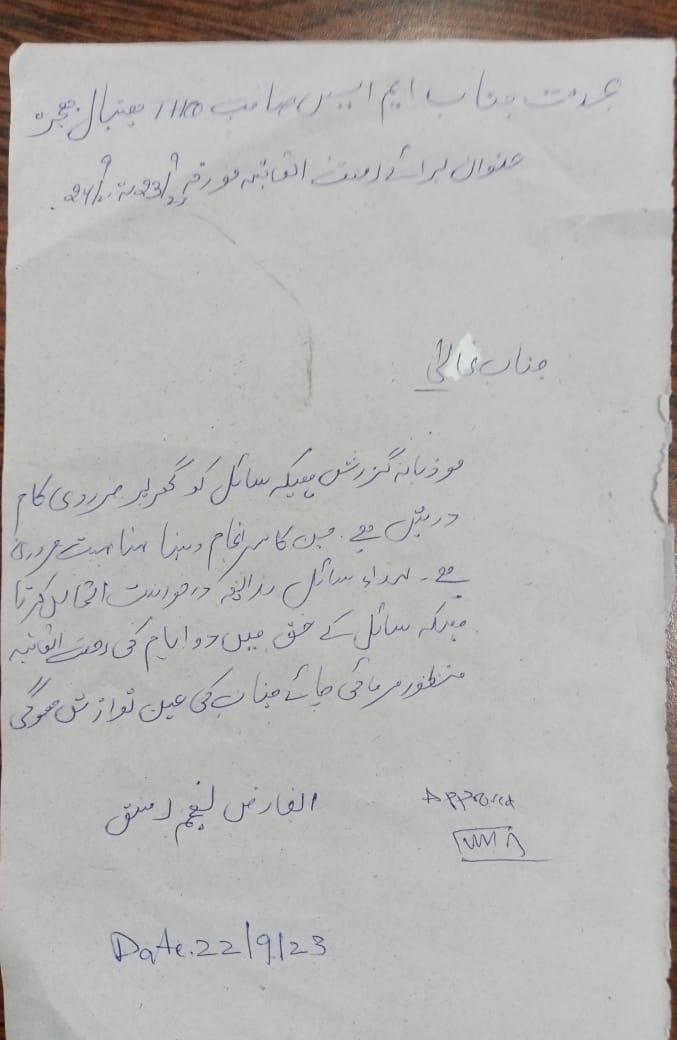 بخدمت جناب ایم ایس صاحب THQ ہسپتال ہجیرہ
عنوان برائے رخصت اتفاقیہ مورخہ 23/9 تا 24/9
جناب عالی
مودبانہ گزارش ہیکہ سائل کو گھر پر ضروری کام
درپیش ہے۔ جس کا سرانجام دینا نہایت ضروری
ہے۔ لہذاء سائل بذریعہ درخواست التماس کرتا
ہیکہ سائل کے حق میں دو ایام کی رخصت اتفاقیہ
منظور فرمائی جائے جناب کی عین نوازش ہوگی
العارض نعیم
Approved
Date. 22/9/23